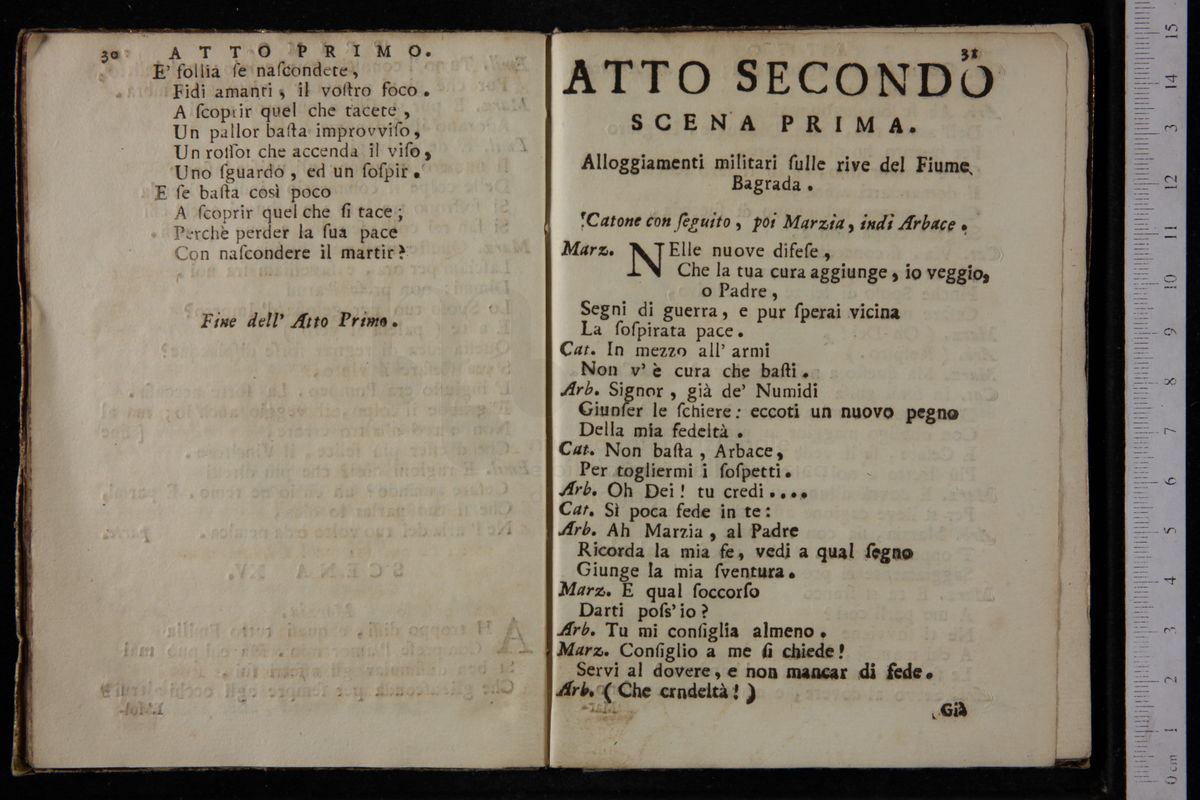 30 ATTO PRIMO.
E' follia ſe naſcondete,
Fidi amanti, il voſtro foco.
A ſcoprir quel che tacete,
Un pallor baſta improvviſo,
Un roſſor che accenda il viſo,
Uno ſguardo, ed un ſoſpir.
E ſe baſta così poco
A ſcoprir quel che ſi tace;
Perchè perder la ſua pace
Con naſcondere il martir?
Fine dell' Atto Primo.
31
ATTO SECONDO
SCENA PRIMA.
Alloggiamenti militari ſulle rive del Fiume
Bagrada.
Catone con ſeguito, poi Marzia, indi Arbace.
Marz. NElle nuove difeſe,
Che la tua cura aggiunge, io veggio,
o Padre,
Segni di guerra, e pur ſperai vicina
La ſoſpirata pace.
Cat. In mezzo all' armi
Non v' è cura che baſti.
Arb. Signor, già de' Numidi
Giunſer le ſchiere: eccoti un nuovo pegno
Della mia fedeltà.
Cat. Non baſta, Arbace,
Per togliermi i ſoſpetti.
Arb. Oh Dei! tu credi....
Cat. Sì poca fede in te:
Arb. Ah Marzia, al Padre
Ricorda la mia fe, vedi a qual ſegno
Giunge la mia ſventura.
Marz. E qual ſoccorſo
Darti poſs' io?
Arb. Tu mi conſiglia almeno.
Marz. Conſiglio a me ſi chiede!
Servi al dovere, e non mancar di fede.
Arb. (Che crndeltà!)
Già
0 cm 1 2 3 4 5 6 7 8 9 10 11 12 13 14 15